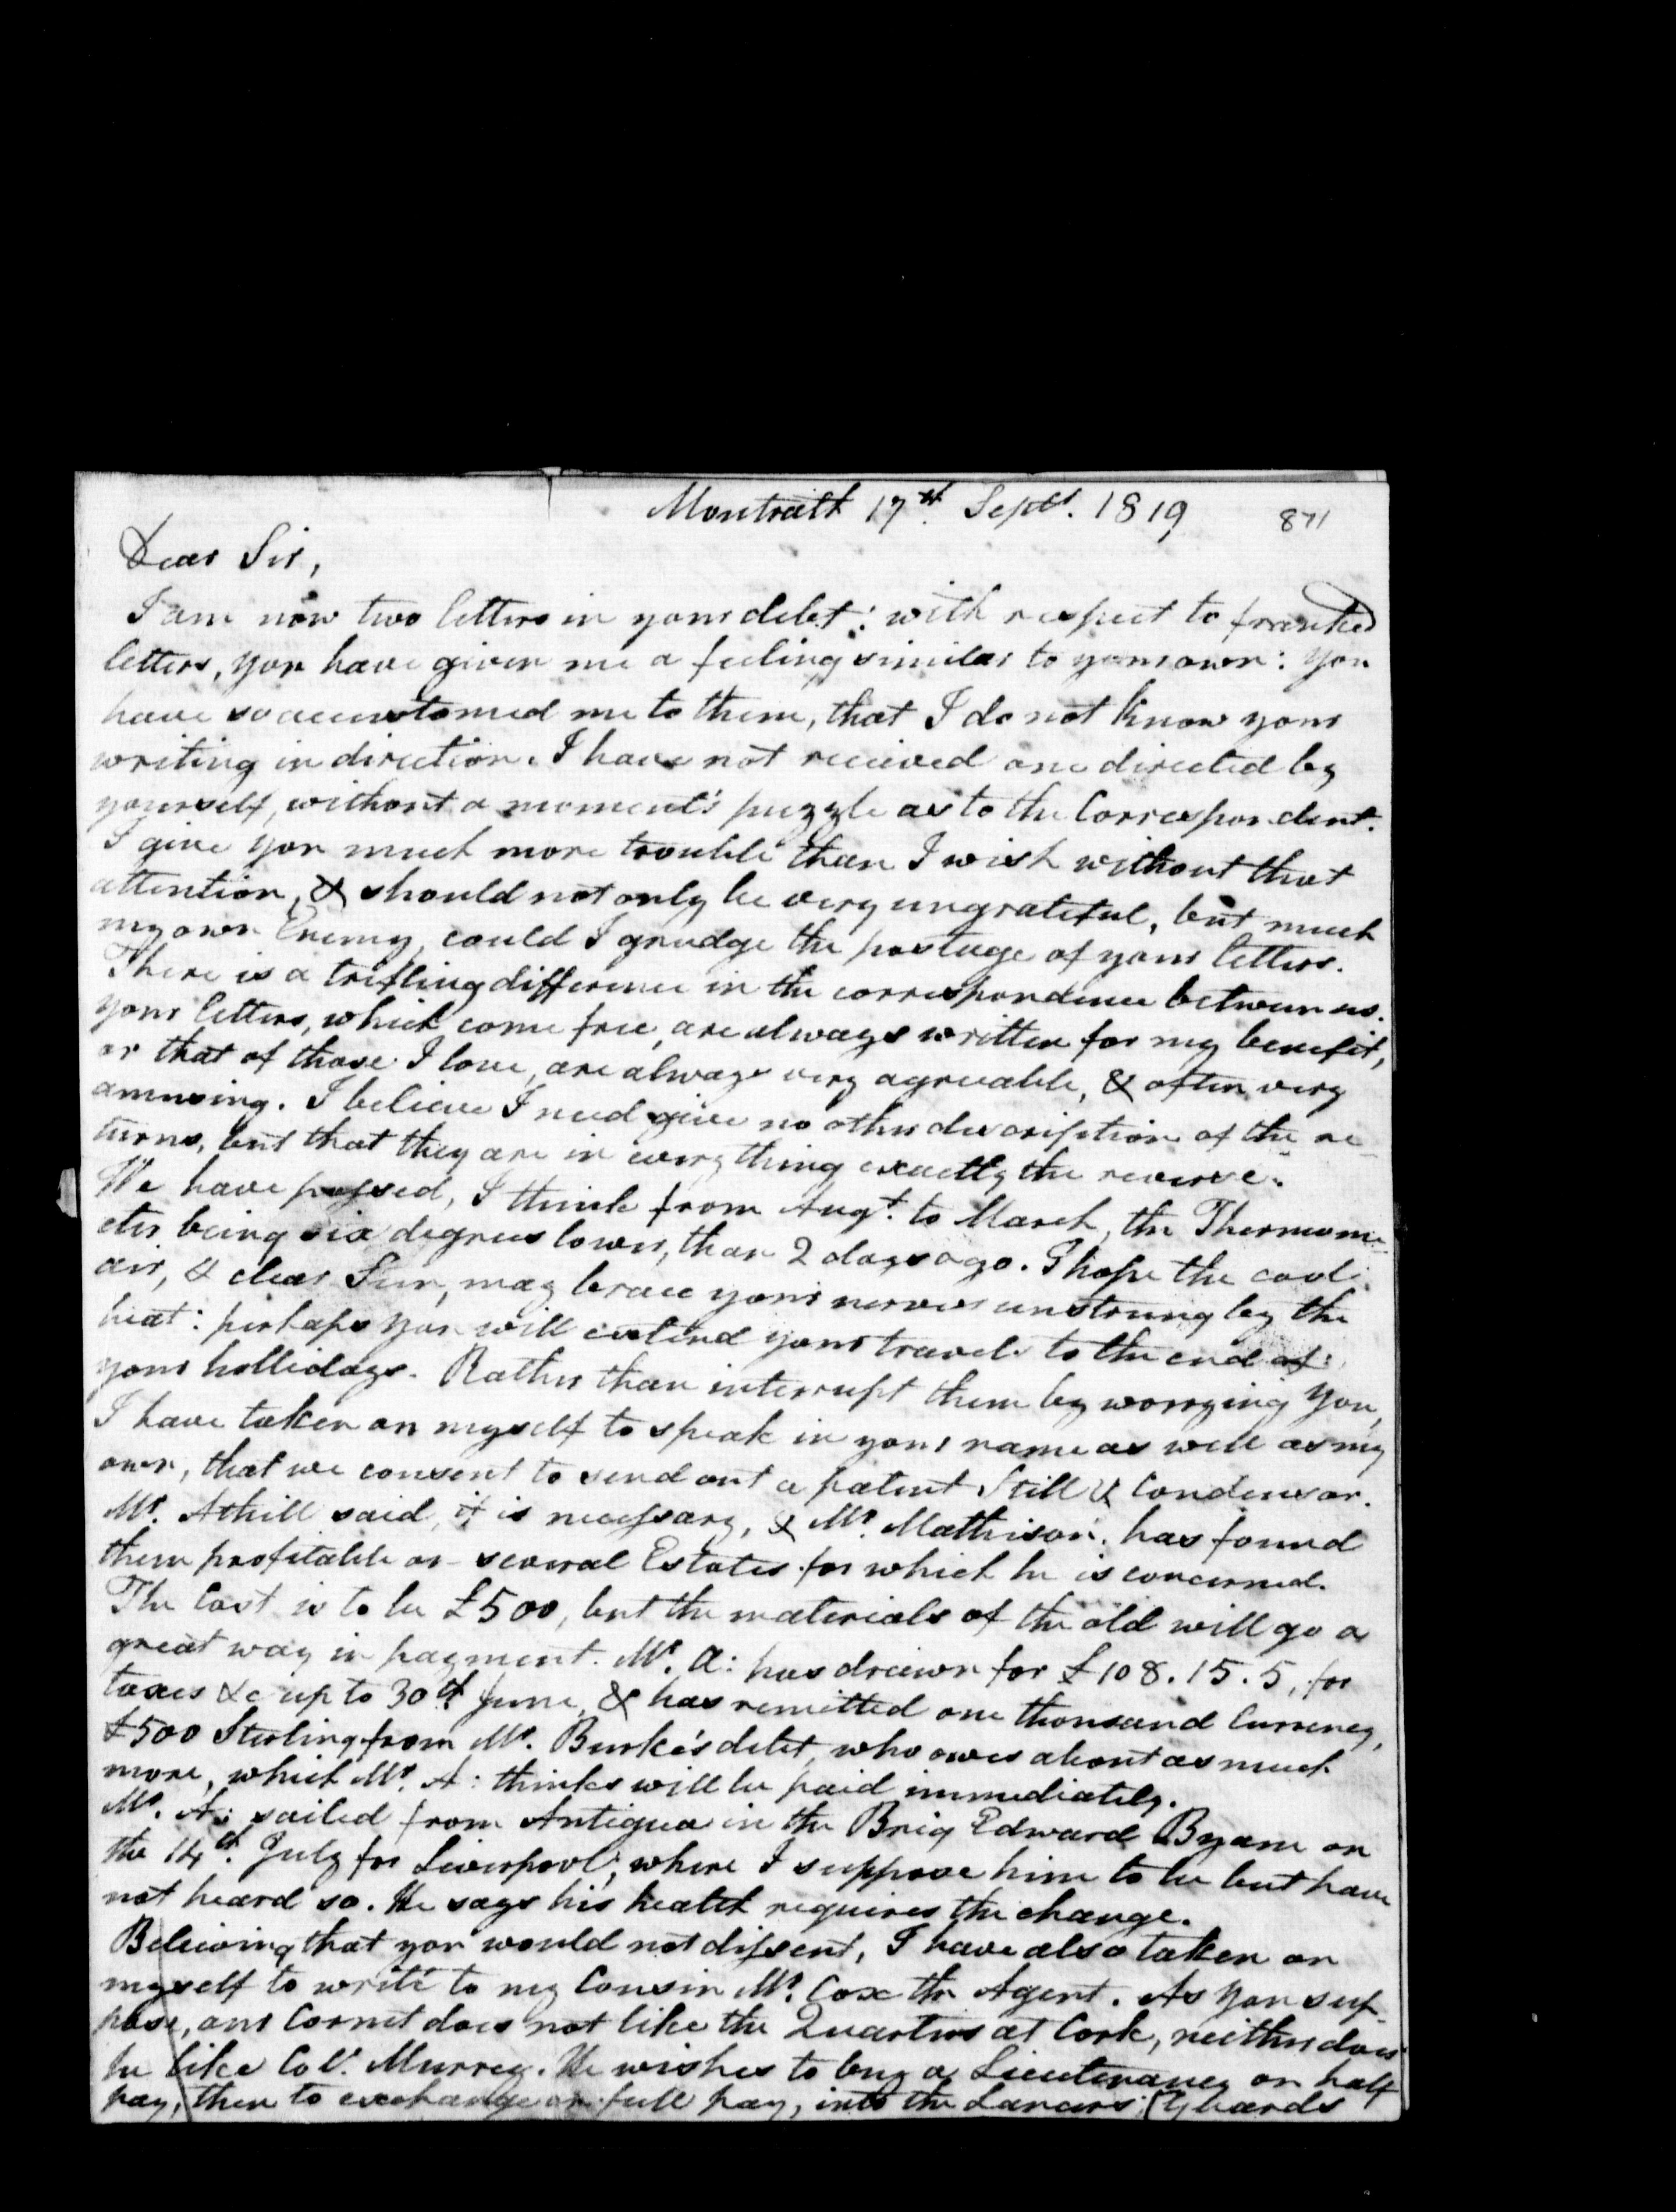 Montrath 17th. Sept. 1819 871
Dear Sir,
I am now two letters in your debt: with respect to franked
letters, you have given me a feeling similar to your own: you
have so accustomed me to them, that I do not know your
writing in direction. I have not recieved one directed by
yourself, without a moment's puzzle as to the Correspondent.
I give you much more trouble than I wish without that
attention, & should not only be very ungrateful, but much
my own Enemy, could I grudge the postage of your letters.
There is a trifling difference in the correspondence between us.
your letters, which come free, are always written for my benefit,
or that of those I love, are always very agreeable, & often very
amusing. I believe I need give no other description of the re-
turns, but that they are in every thing exactly the reverse.
We have passed, I think from Augt. to March, the Thermom-
eter being six degrees lower, than 2 days ago. I hope the cool
air, & clear Sun, may brace your nerves unstrung by the
heat: perhaps you will extend your travels to the end of
your hollidays. Rather than interrupt them by worrying you,
I have taken on myself to speak in your name as well as my
own, that we consent to send out a patent Still & Condensor.
Mr. Athill said, it is necessary, & Mr. Mathison has found
them profitable on several Estates for which he is concerned.
The Cost is to be £500, but the materials of the old will go a
great way in payment. Mr. A: has drawn for £108.15.5, for
taxes &c up to 30th June, & has remitted one thousand Currency,
£500 Sterling from Mr. Burke's debt, who owes about as much
more, which Mr. A: thinks will be paid immediately.
Mr. A: sailed from Antigua in the Brig Edward Byam on
the 14th. July for Liverpool, where I suppose him to be but have
not heard so. He says his health requires the change.
Believing that you would not dissent, I have also taken on
myself to write to my Cousin Mr. Cox the Agent. As you sup-
pose, our Cornet does not like the Quarters at Cork, neither does
he like Col. Murrey. He wishes to buy a Lieutenancy on half
pay, then to exchange on full pay, into the Lancers: (Guards